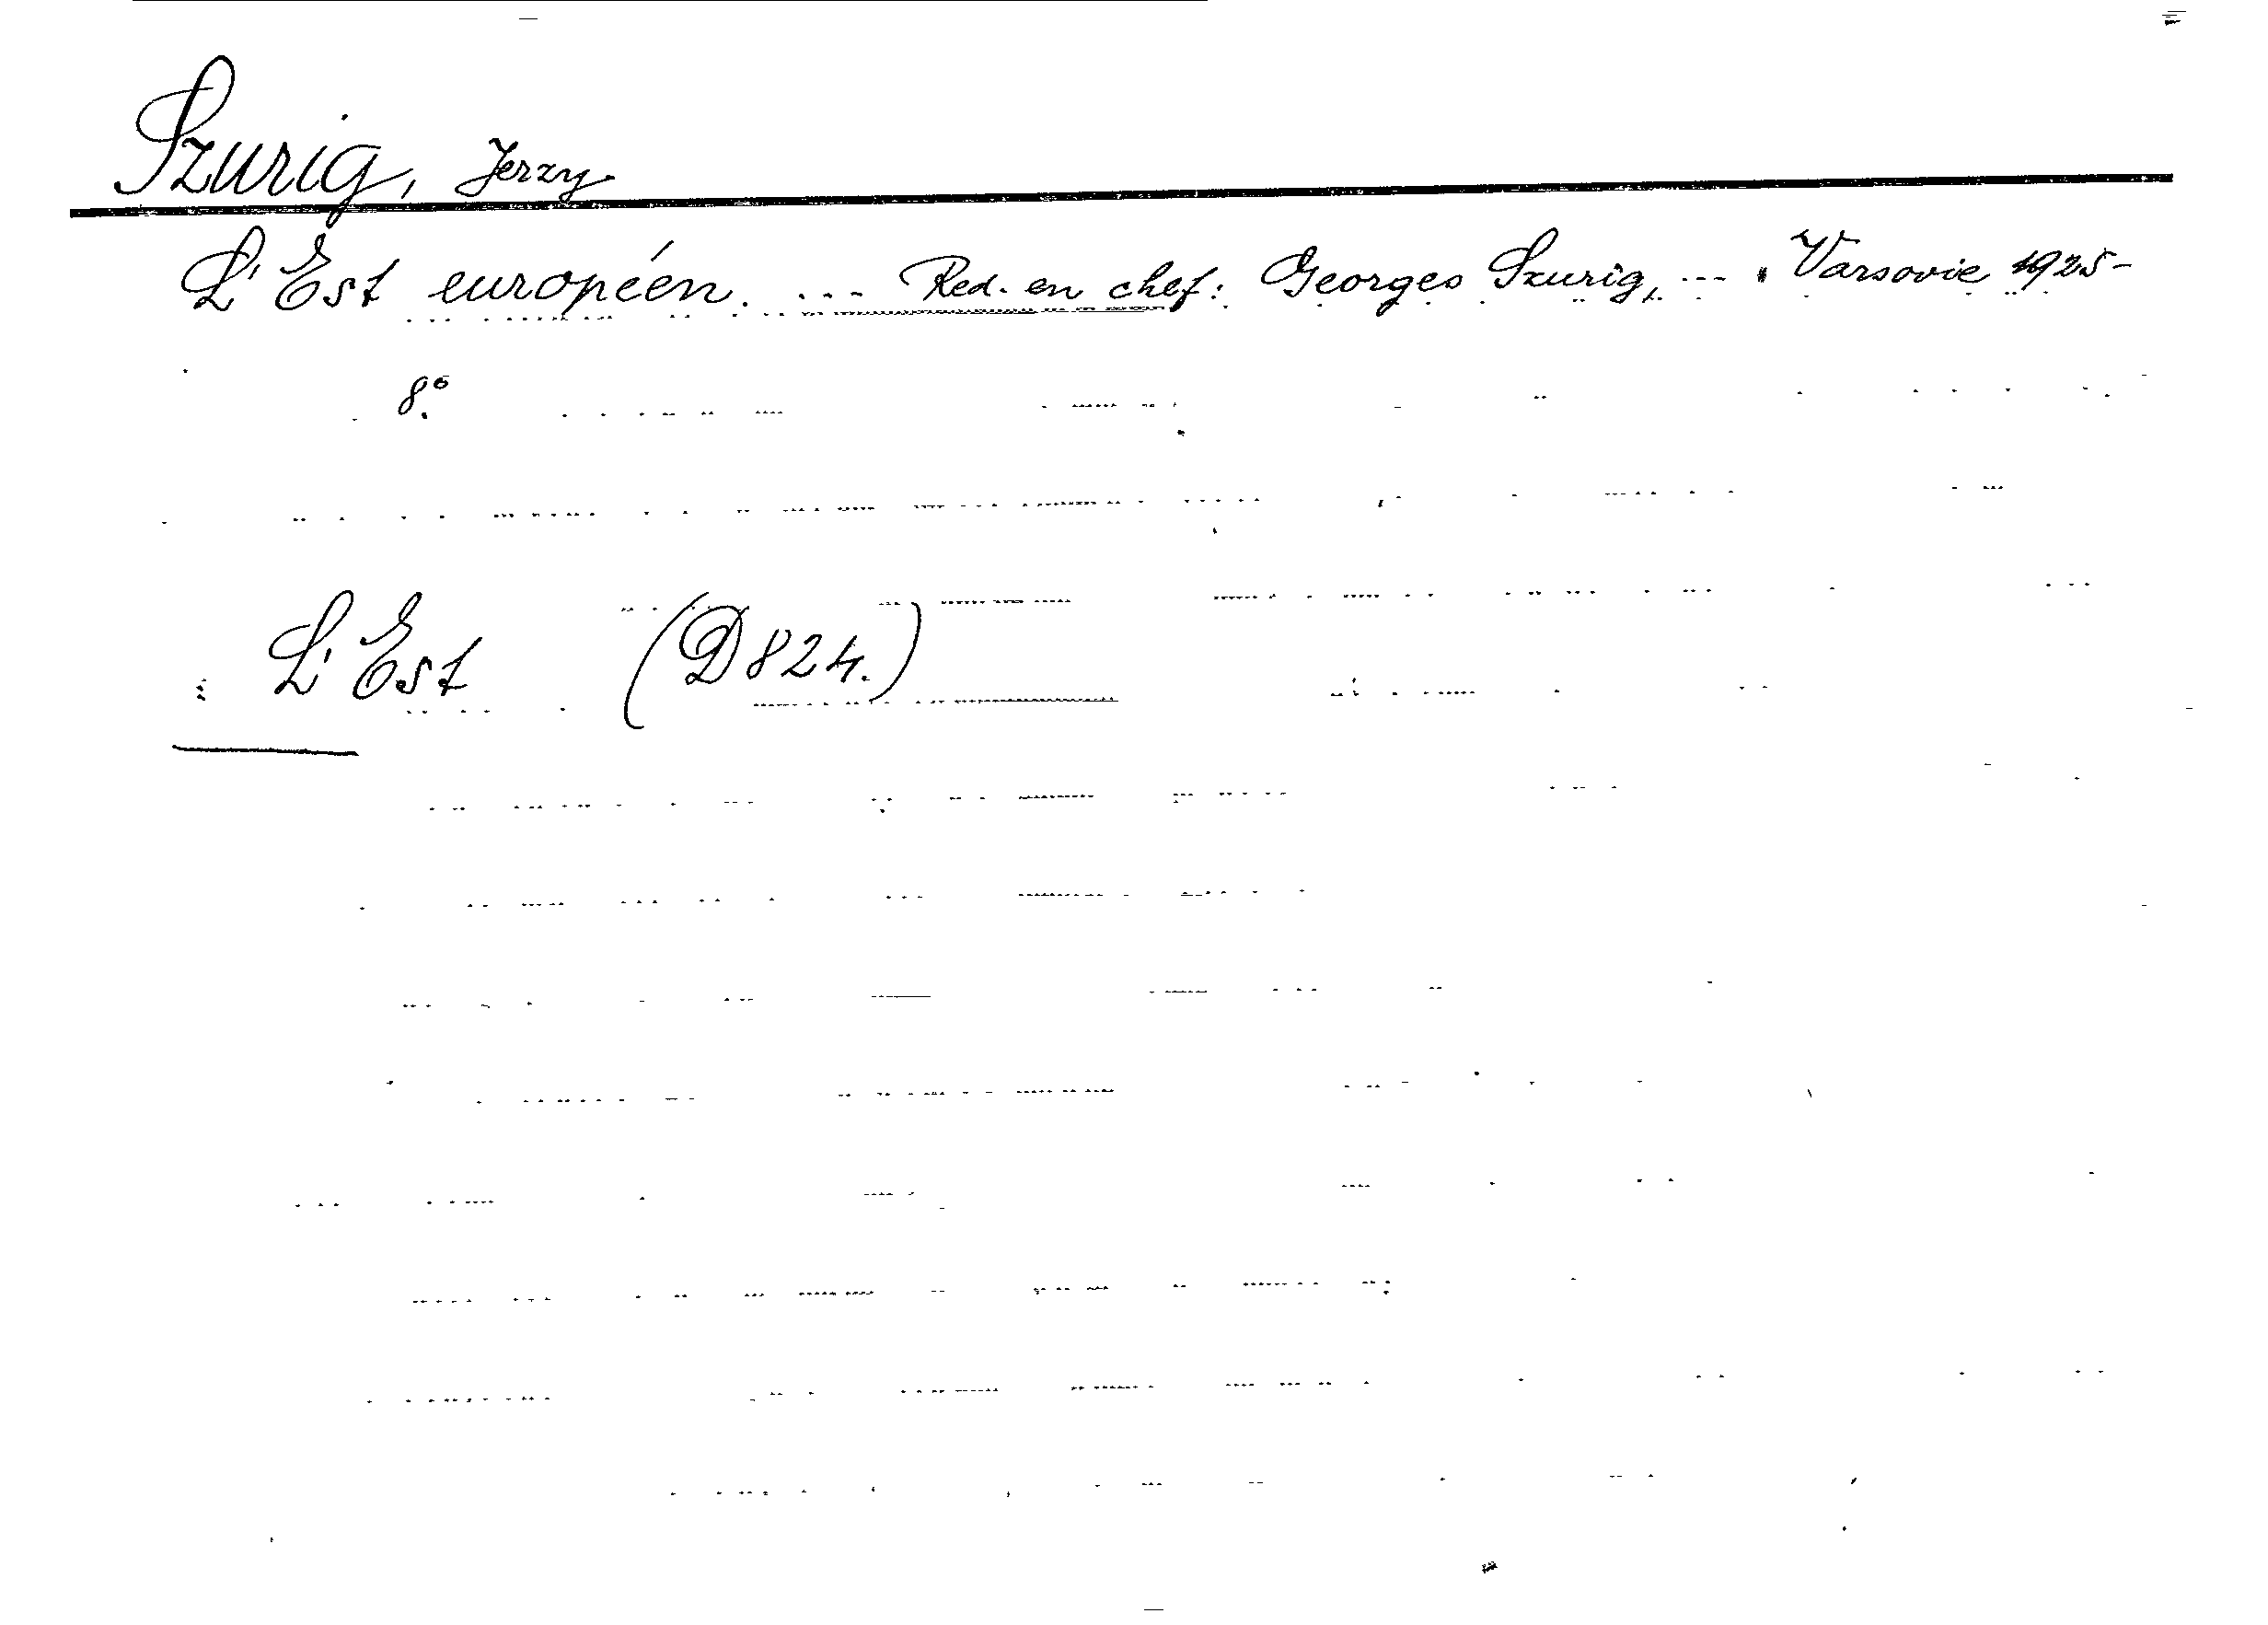 Szurig, Jerzy
L'Est européen. ... Red. en chef: Georges Szurig, ... . Varsovie 1925-
8°.
L'Est (D 824.)